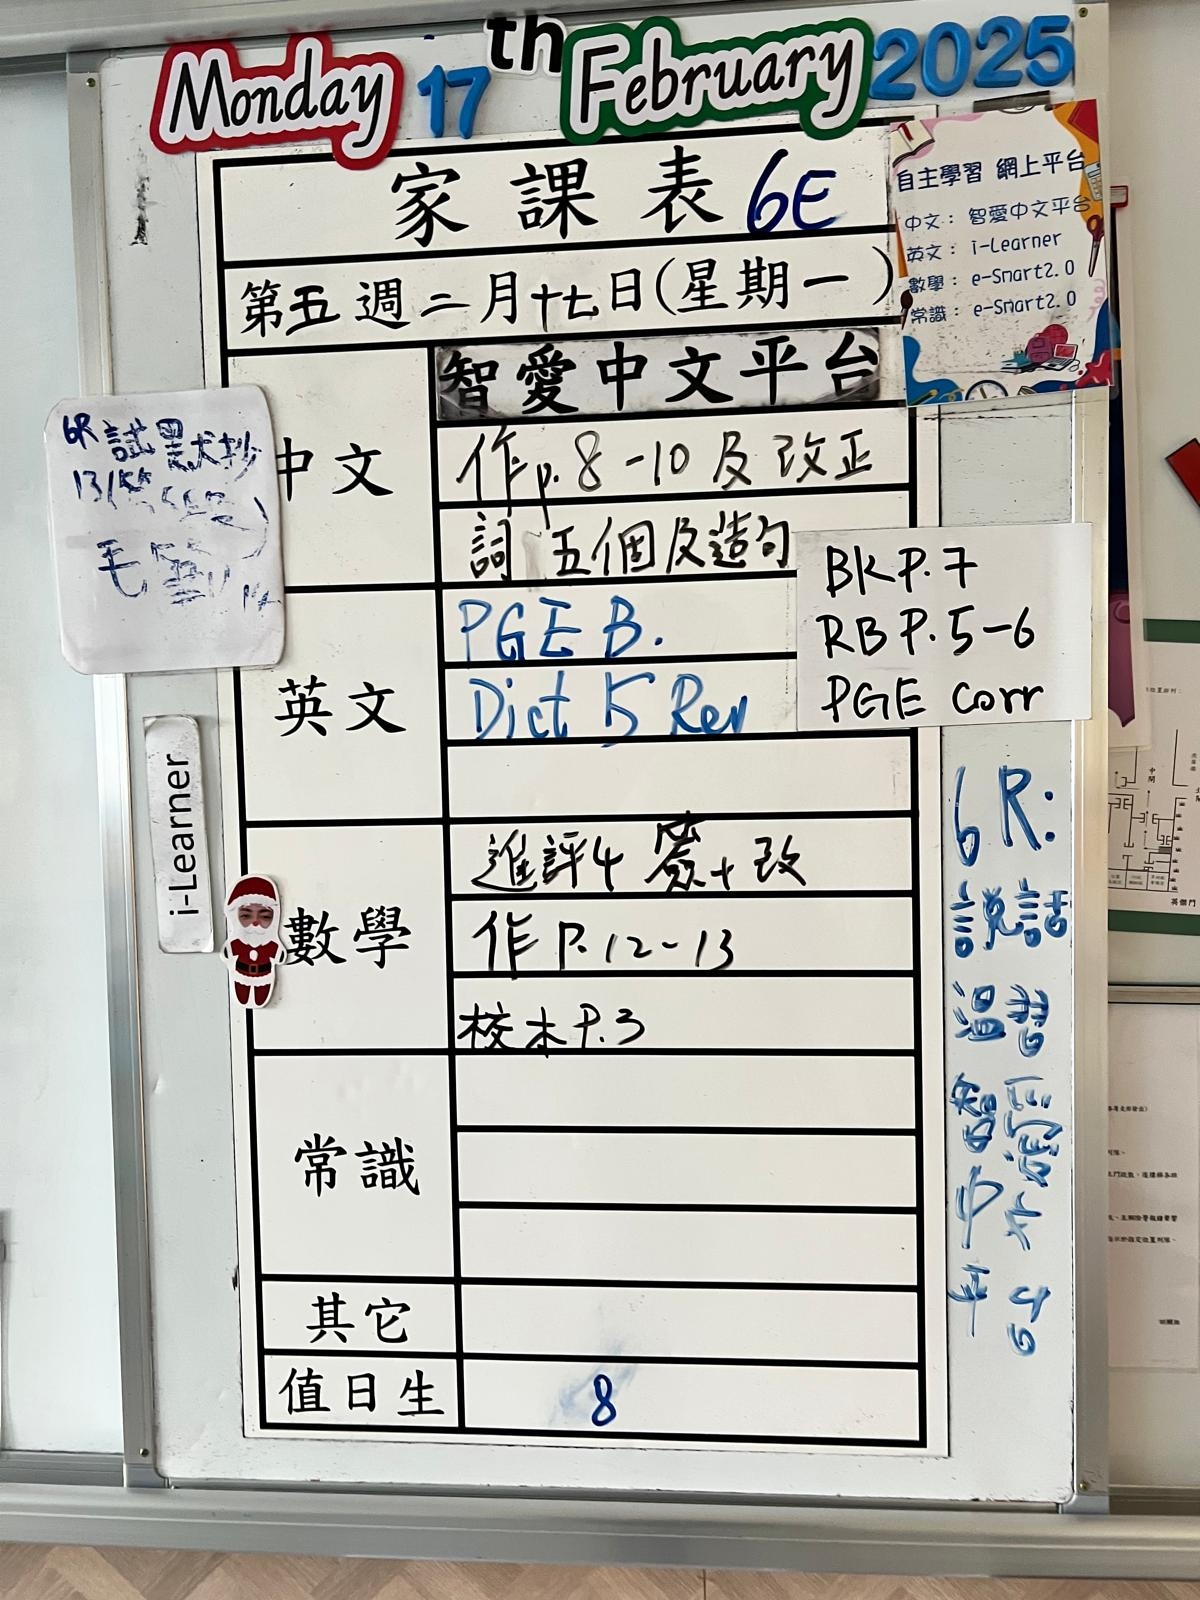 Monday 17th February 2025
家課表 6E
第五週二月十七日(星期一)
自主學習 網上平台
中文： 智愛中文平台
英文： i-Learner
數學： e-Smart2.0
常識： e-Smart2.0
中文
智愛中文平台
作p.8-10及改正
詞 五個及造句
6R 試默抄
毛筆
英文
PGE B.
Dict 5 Rev
BK P.7
RB P.5-6
PGE corr
i-Learner
數學
進評4 簽+改
作 P.12-13
校本 P.3
常識
其它
值日生
8
6R:
說話
溫習
智愛
中文
平台